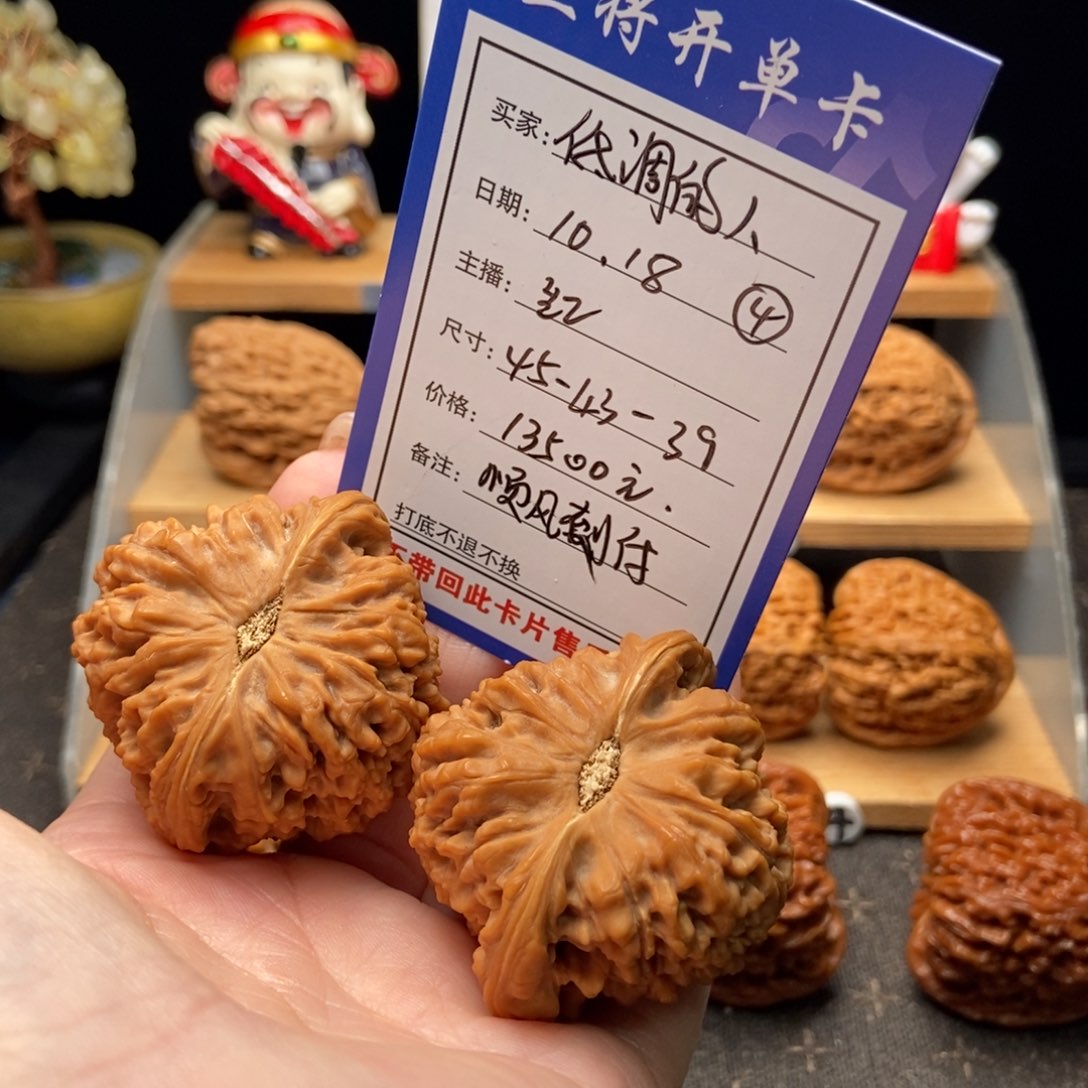 将开单卡
买家: 低调的人
日期: 10.18 ④
主播:
尺寸: 45-43-39
价格: 13500元.
备注: 顺风到付
打底不退不换
带回此卡片售